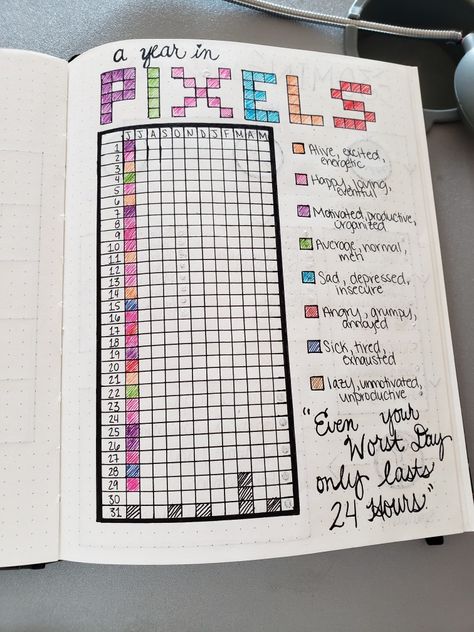 a year in
PIXELS
J J A S O N D J F M A M
1
2
3
4
5
6
7
8
9
10
11
12
13
14
15
16
17
18
19
20
21
22
23
24
25
26
27
28
29
30
31
Alive, excited,
energetic
Happy, loving,
eventful
Motivated, productive,
organized
Average, normal,
meh
Sad, depressed,
insecure
Angry, grumpy,
annoyed
Sick, tired,
exhausted
lazy, unmotivated,
unproductive
"Even your
Worst Day
only lasts
24 Hours"